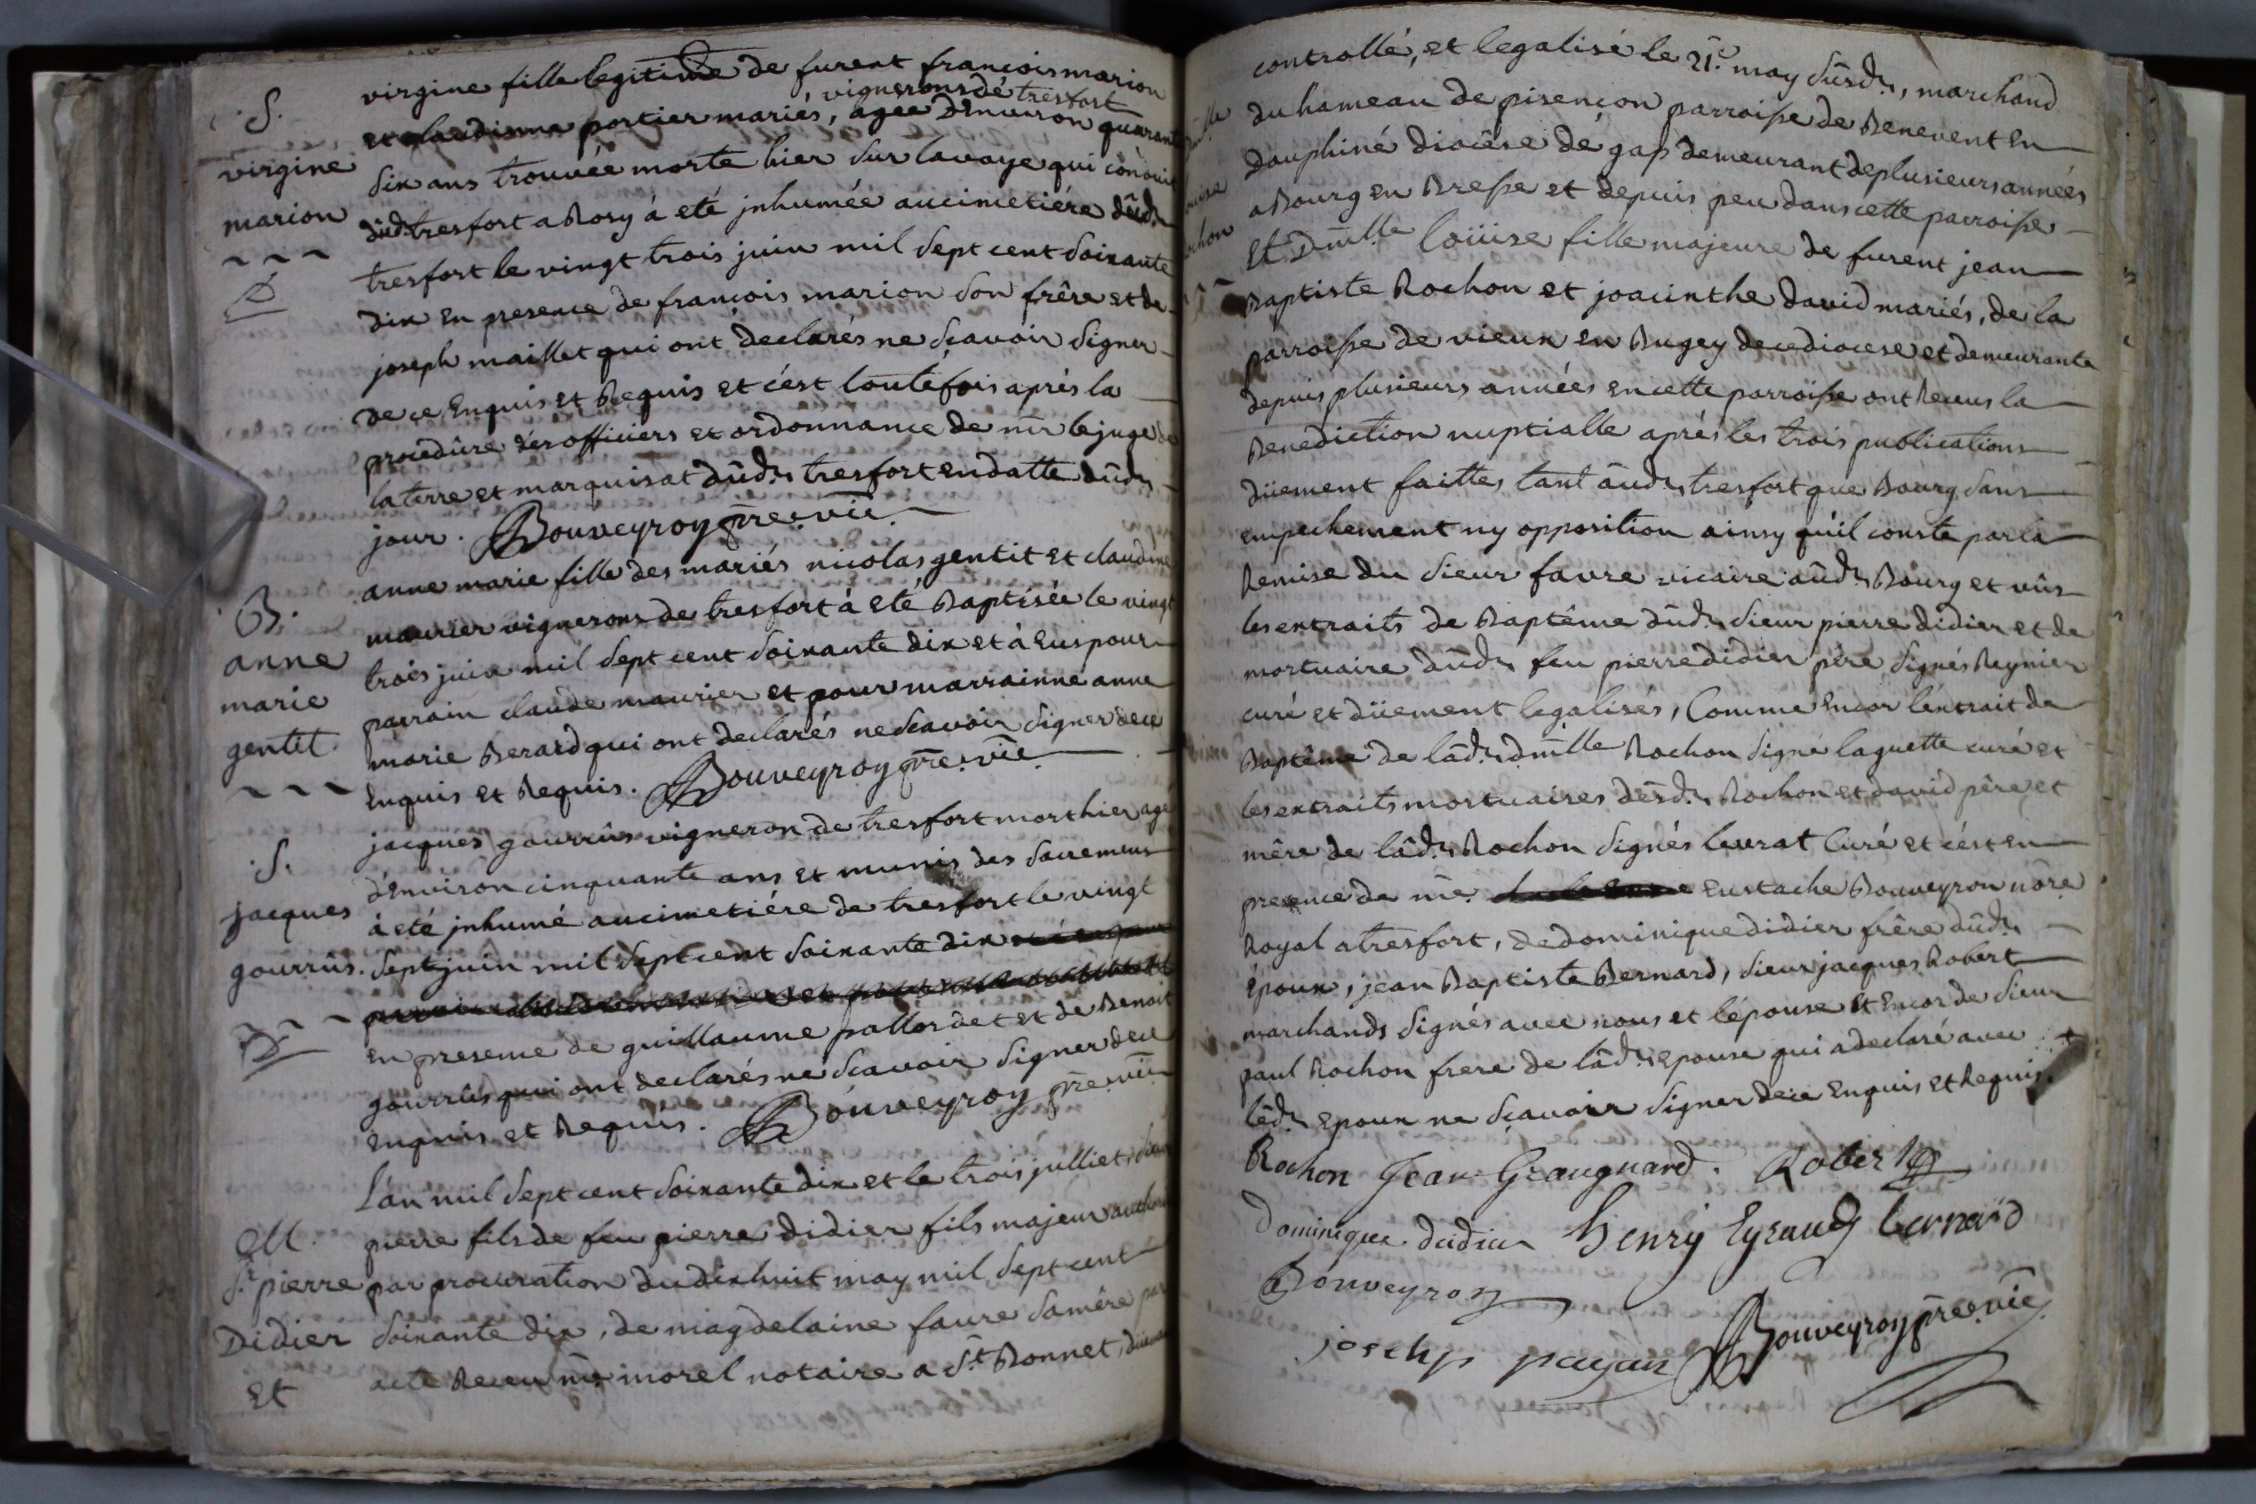 S.
virgine
marion
virgine fille legitime de furent francois marion
vignerons de tresfort
et claudinne portier mariés, agée d'environ quarant
six ans trouvée morte hier sur la voye qui conduit
dud. tresfort a Rosy à eté jnhumée au cimetiére dûd.
tresfort le vingt trois juin mil sept cent soixante
dix en presence de francois marion son frêre et de
joseph maillet qui ont declarés ne sçavoir signer
de ce Enquis et Requis et c'est toutefois aprés la
procedûre des officiers et ordonnance de mr le juge de
la terre et marquisat dûd. tresfort en datte dûd.
jour. Bouveyron pre. vic.
B.
anne
marie
gentit
anne marie fille des mariés nicolas gentit et claudine
maurier vignerons de tresfort à eté Baptisée le vingt
trois juin mil sept cent soixante dix et à Eus pour
parrain claude maurier et pour marrainne anne
marie Berard qui ont declarés ne scavoir signer de ce
Enquis et Requis. Bouveyron pre. vic.
S.
jacques
gourrûs.
jacques gourrûs vigneron de tresfort mort hier agé
d'Environ cinquante ans et munis des sacremens
à eté jnhumé au cimetiére de tresfort le vingt
sept juin mil sept cent soixante dix
en presence de guillaume pallordet et de Benoit
gourrûs qui ont declarés ne scavoir signer de ce
Enquis et Requis. Bouveyron pre. vic.
M.
Sr. pierre
Didier
et
L'an mil sept cent soixante dix et le trois julliet, sieur
pierre fils de feu pierre Didier fils majeur
par procuration du dix huit may mil sept cent
soixante dix, de magdelaine faure sa mére par
acte Receu me morel notaire a St. Bonnet,
controllé, et legalisé le 21e. may sûsd., marchand
du hameau de pisençon parroisse de Benevent En
Dauphiné diocêse de gap demeurant de plusieurs années
a Bourg en Bresse et depuis peu dans cette parroisse
Et Dmlle Loüise fille majeure de furent jean
Baptiste Rochon et joacinthe david mariés, de la
parroisse de vieux en Bugey de ce diocese et demeurante
depuis plusieurs années en cette parroisse ont Receus la
Benediction nuptialle aprés les trois publications
düement faittes tant aûd. tresfort que Bourg sans
empechement ny opposition ainsy qu'il conste par la
Remise du sieur favre vicaire aûd. Bourg et vûs
les extraits de Baptême dûd. sieur pierre didier et de
mortuaire dûd. feu pierre didier pére signés Reynier
curé et düement legalisés, Comme Encor l'extrait de
Baptême de lâd. dmlle Rochon signé laguette curé et
les extraits mortuaires dêsd. Rochon et david pêre et
mêre de lâd. Rochon signés levrat Curé et c'est en
presence de me. Eustache Bouveyron nore
Royal a tresfort, de dominique didier frêre dûd.
Époux, jean Baptiste Bernard, sieur jacques Robert
marchands signés avec nous et l'épouse et Encor de sieur
paul Rochon frere de lâd. Epouse qui a declaré avec
lêd. Epoux ne sçavoir signer de ce Enquis et Requis.
Rochon Jean Graugnard. Robert
Dominique didier henry Eyraud bernard
Bouveyron
josehp payan Bouveyron pre. vic.